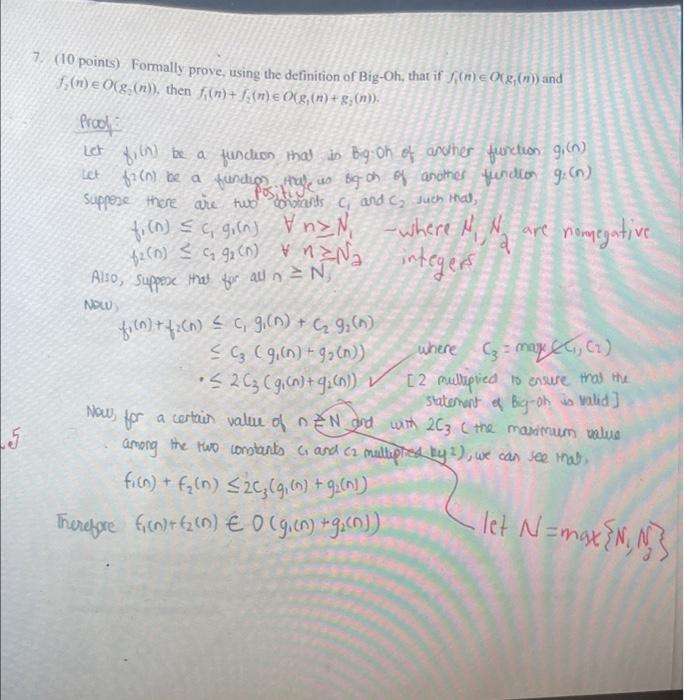 7. (10 points) Formally prove, using the definition of Big-Oh, that if f₁(n) ∈ O(g₁(n)) and
f₂(n) ∈ O(g₂(n)), then f₁(n) + f₂(n) ∈ O(g₁(n) + g₂(n)).
Proof:
Let f₁(n) be a function that is Big-Oh of another function g₁(n)
Let f₂(n) be a function that is big oh of another function g₂(n)
positive
Suppose there are two constants c₁ and c₂ such that,
f₁(n) ≤ c₁ g₁(n) ∀ n ≥ N₁ - where N₁, N₂ are nonnegative
f₂(n) ≤ c₂ g₂(n) ∀ n ≥ N₂ integers
Also, suppose that for all n ≥ N,
Now,
f₁(n) + f₂(n) ≤ c₁ g₁(n) + c₂ g₂(n)
≤ c₃ (g₁(n) + g₂(n)) where c₃ = max(c₁, c₂)
≤ 2c₃ (g₁(n) + g₂(n)) ✓ [2 multiplied to ensure that the
statement of Big-oh is valid]
Now, for a certain value of n ≥ N and with 2c₃ (the maximum value
.5
among the two constants c₁ and c₂ multiplied by 2), we can see that,
f₁(n) + f₂(n) ≤ 2c₃(g₁(n) + g₂(n))
Therefore f₁(n) + f₂(n) ∈ O(g₁(n) + g₂(n))
let N = max{N₁, N₂}